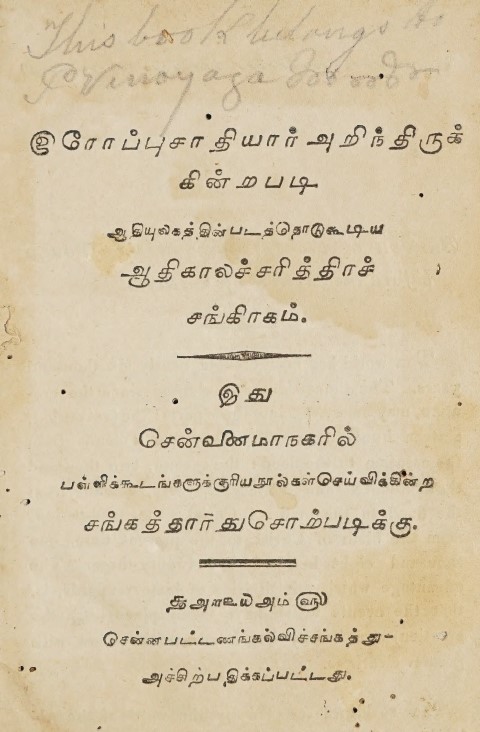 This book belongs to
P Vinoyaga
இரோப்புசாதியார் அறிந்திருக்
கின்றபடி
ஆதியுலகத்தின்படத்தோடுகூடிய
ஆதிகாலச்சரித்திரச்
சங்கிரகம்.
இது
சென்னைமாநகரில்
பள்ளிக்கூடங்களுக்குரியநூல்கள்செய்விக்கின்ற
சங்கத்தார் துசொற்படிக்கு.
சென்னபட்டணங்கல்விச்சங்கத்து-
அச்சிற்பதிக்கப்பட்டது.